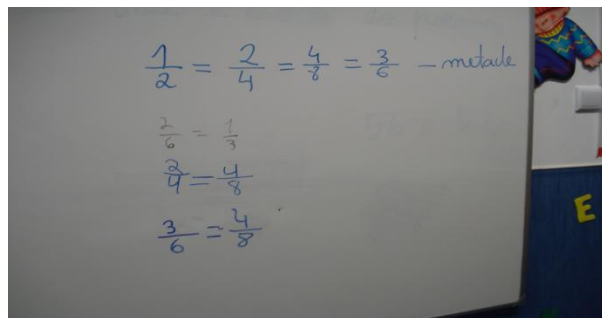 1/2 = 2/4 = 4/8 = 3/6 - metade
2/6 = 1/3
2/4 = 4/8
3/6 = 4/8
E